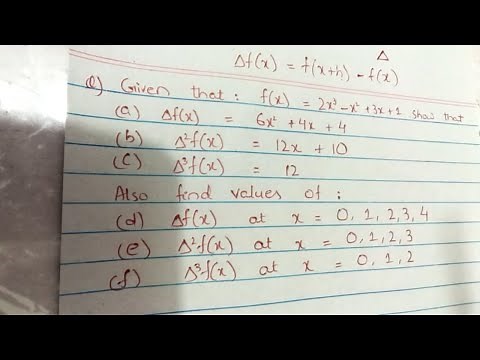 Δ
Δf(x) = f(x+h) - f(x)
Q) Given that : f(x) = 2x³-x²+3x+1 show that
(a) Δf(x) = 6x² + 4x + 4
(b) Δ²f(x) = 12x + 10
(c) Δ³f(x) = 12
Also find values of :
(d) Δf(x) at x = 0, 1, 2, 3, 4
(e) Δ²f(x) at x = 0, 1, 2, 3
(f) Δ³f(x) at x = 0, 1, 2